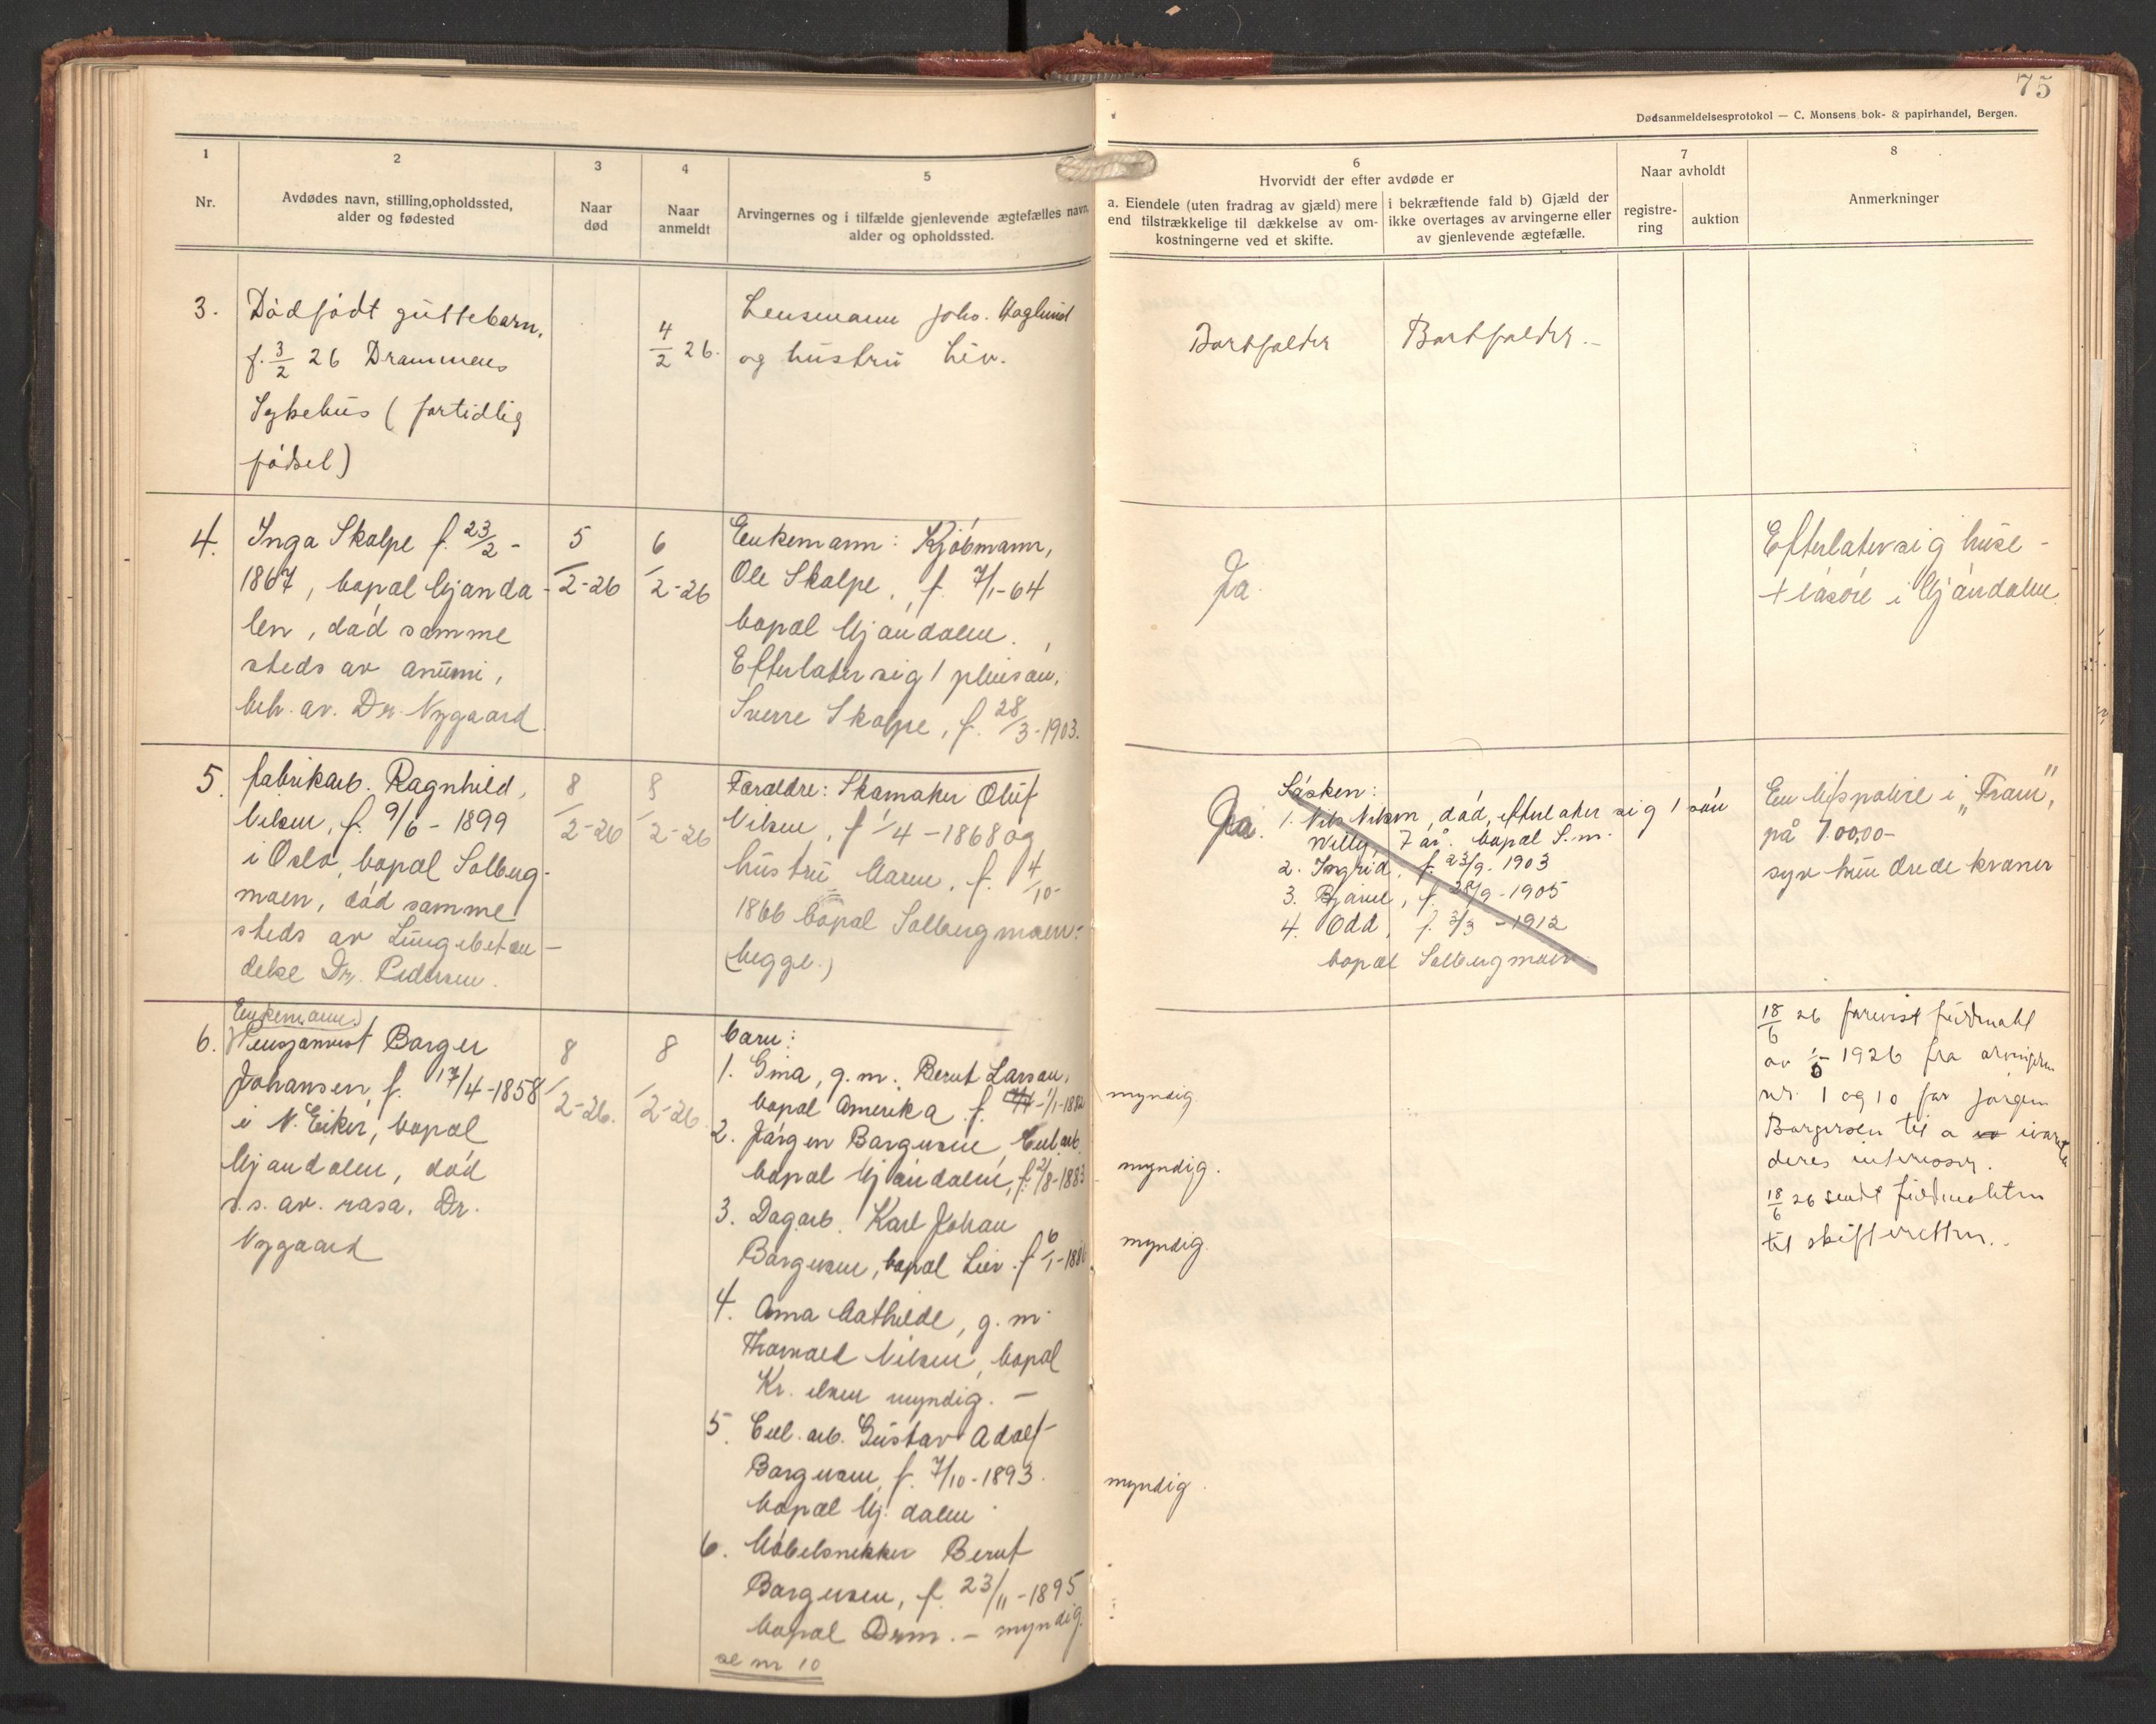 75
Dødsanmeldelsesprotokol — C. Monsens bok- & papirhandel, Bergen.
1
Nr.
2
Avdødes navn, stilling, opholdssted,
alder og fødested
3
Naar
død
4
Naar
anmeldt
5
Arvingernes og i tilfælde gjenlevende ægtefælles navn,
alder og opholdssted.
6
Hvorvidt der efter avdøde er
a. Eiendele (uten fradrag av gjæld) mere
end tilstrækkelige til dækkelse av om-
kostningerne ved et skifte.
i bekræftende fald b) Gjæld der
ikke overtages av arvingerne eller
av gjenlevende ægtefælle.
7
Naar avholdt
registre-
ring
auktion
8
Anmerkninger
3.
Dødfødt guttebarn,
f. 3/2 26 Drammens
Sykehus (fortidlig
fødsel)
4/2 26.
Lensmann Johs. Haglund
og hustru Liv.
Bortfalder
Bortfalder.-
4.
Inga Skalpe f. 23/2 -
1867, bopæl Mjønda-
len, død samme
steds av anæmi,
beh. av. Dr. Nygaard
5/2-26
6/2-26
Enkemann: Kjøbmann,
Ole Skalpe, f. 7/1-64
bopæl Mjøndalen.
Efterlater sig 1 pleiesøn,
Sverre Skalpe, f. 28/3-1903.
Ja.
Efterlater sig huse-
+ løsøre i Mjøndalen.
5.
fabrikarb. Ragnhild,
Nilsen, f. 9/6 - 1899
i Oslo, bopæl Solberg-
moen, død samme
steds av Lungebetæn-
delse Dr. Pedersen.
8/2-26
8/2-26
Forældre: Skomaker Oluf
Nilsen, f. 1/4-1868 og
hustru Maren, f. 4/10-
1866 bopæl Solbergmoen.
(begge.)
Ja.
Søsken:
1. Nils Nilsen, død, efterlater sig 1 søn
Willy, 7 år. bopæl S.m.
2. Ingrid, f. 23/9-1903
3. Bjarne, f. 28/9-1905
4. Odd, f. 3/3 -1912
bopæl Solbergmoen
En livspolise i "Fram",
på 700,00-
syv hundrede kroner
6.
Enkemann
Pensjonist Borger
Johansen, f. 17/4-1858
i N. Eiker, bopæl
Mjøndalen, død
s.s. av. rosa. Dr.
Nygaard
8/2-26.
8/2-26
barn:
1. Gina, g.m. Bernt Larsen,
bopæl Amerika f. 1/1-1882
2. Jørgen Borgersen, Cel.arb.
bopæl Mjøndalen, f. 2/8-1883
3. Dagarb. Karl Johan
Borgersen, bopæl Lier. f. 6/1-1886
4. Anna Mathilde, g.m.
Thorvald Nilsen, bopæl
Kr. elven myndig. -
5. Cel.arb. Gustav Adolf
Borgersen, f. 7/10-1893.
bopæl Mj. dalen
6. Møbelsnekker Bernt
Borgersen, f. 23/11-1895
bopæl Drm. - myndig.
se nr 10
myndig
myndig.
myndig.
myndig.
18/6 26 forevist fuldmakt
av 1926 fra arvingerne
nr. 1 og 10 for Jørgen
Borgersen til a
deres interesser.
18/6 26 sendt fuldmakten
til skifteretten.